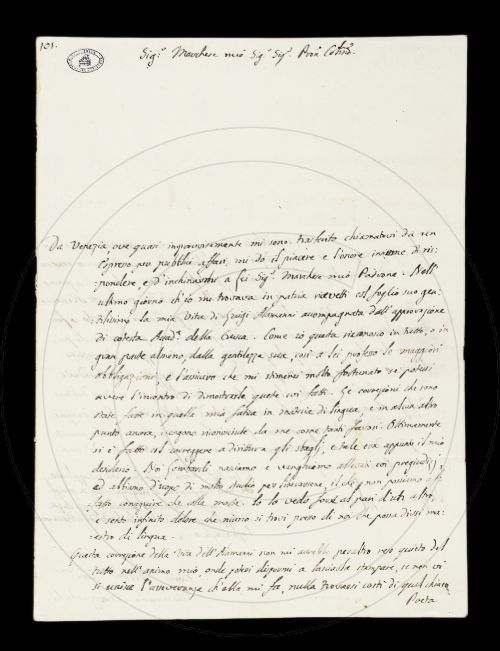 101.
Sig.r Marchese mio Sig.r Sig.r Pron Colmo.
Da Venezia, ove quasi improvvisamente mi sono trasferito chiamatovi da un
Espresso per pubblici affari, mi do il piacere e l'onore insieme di ris:
:pondere, e d'inchinarmi a Lei Sig.r Marchese mio Padrone. Nell'
ultimo giorno ch'io me trovava in patria ricevetti col foglio suo gen:
tilissimo la mia Vita di Luigi Alamanni accompagnata dall'approvazione
di cotesta Accad.a della Crusca. Come io questa riconosco in tutto, o in
gran parte almeno, dalla gentilezza sua, così a Lei professo le maggiori
obbligazioni, e l'assicuro che mi stimerei molto fortunato se potessi
avere l'incontro di dimostrarle queste coi fatti. Le correzioni che sono
state fatte in quella mia fatica in materia di lingua, e in alcun altro
punto ancora, vengono riconosciute da me come tanti favori. Ottimamente
si è fatto al correggere a dirittura gli sbagli, e tale era appunto il mio
desiderio. Noi Lombardi nasciamo e venghiamo allevati coi pregiudizj,
ed abbiamo d'uopo di molto studio per liberarsene, il che non possiamo af:
fatto conseguire che alle volte. Io lo vedo forse al pari d'ogni altro,
e sento infinito dolore che niuno si trovi presso di noi che possa dirsi ma:
estro di lingua.
Questa correzione della Vita dell'Alamanni non mi avrebbe peraltro reso quieto del
tutto nell'animo mio, onde potessi dispormi a lasciarla stampare, se non vi
si univa l'avvertenza ch'ella mi fa, nulla trovarsi costì di quel chiaro
Poeta